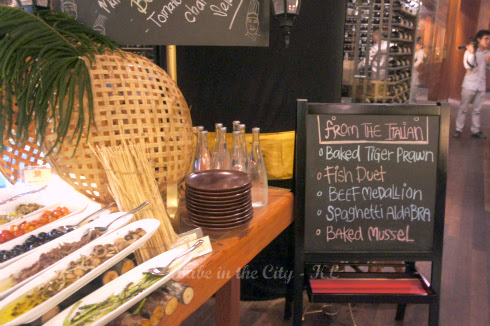 - Tomato
[FROM THE ITALIAN]
• BAKED TIGER PRAWN
• FISH DUET
• BEEF MEDALLION
• SPAGHETTI ALDABRA
• BAKED MUSSEL
Babe in the City - KC